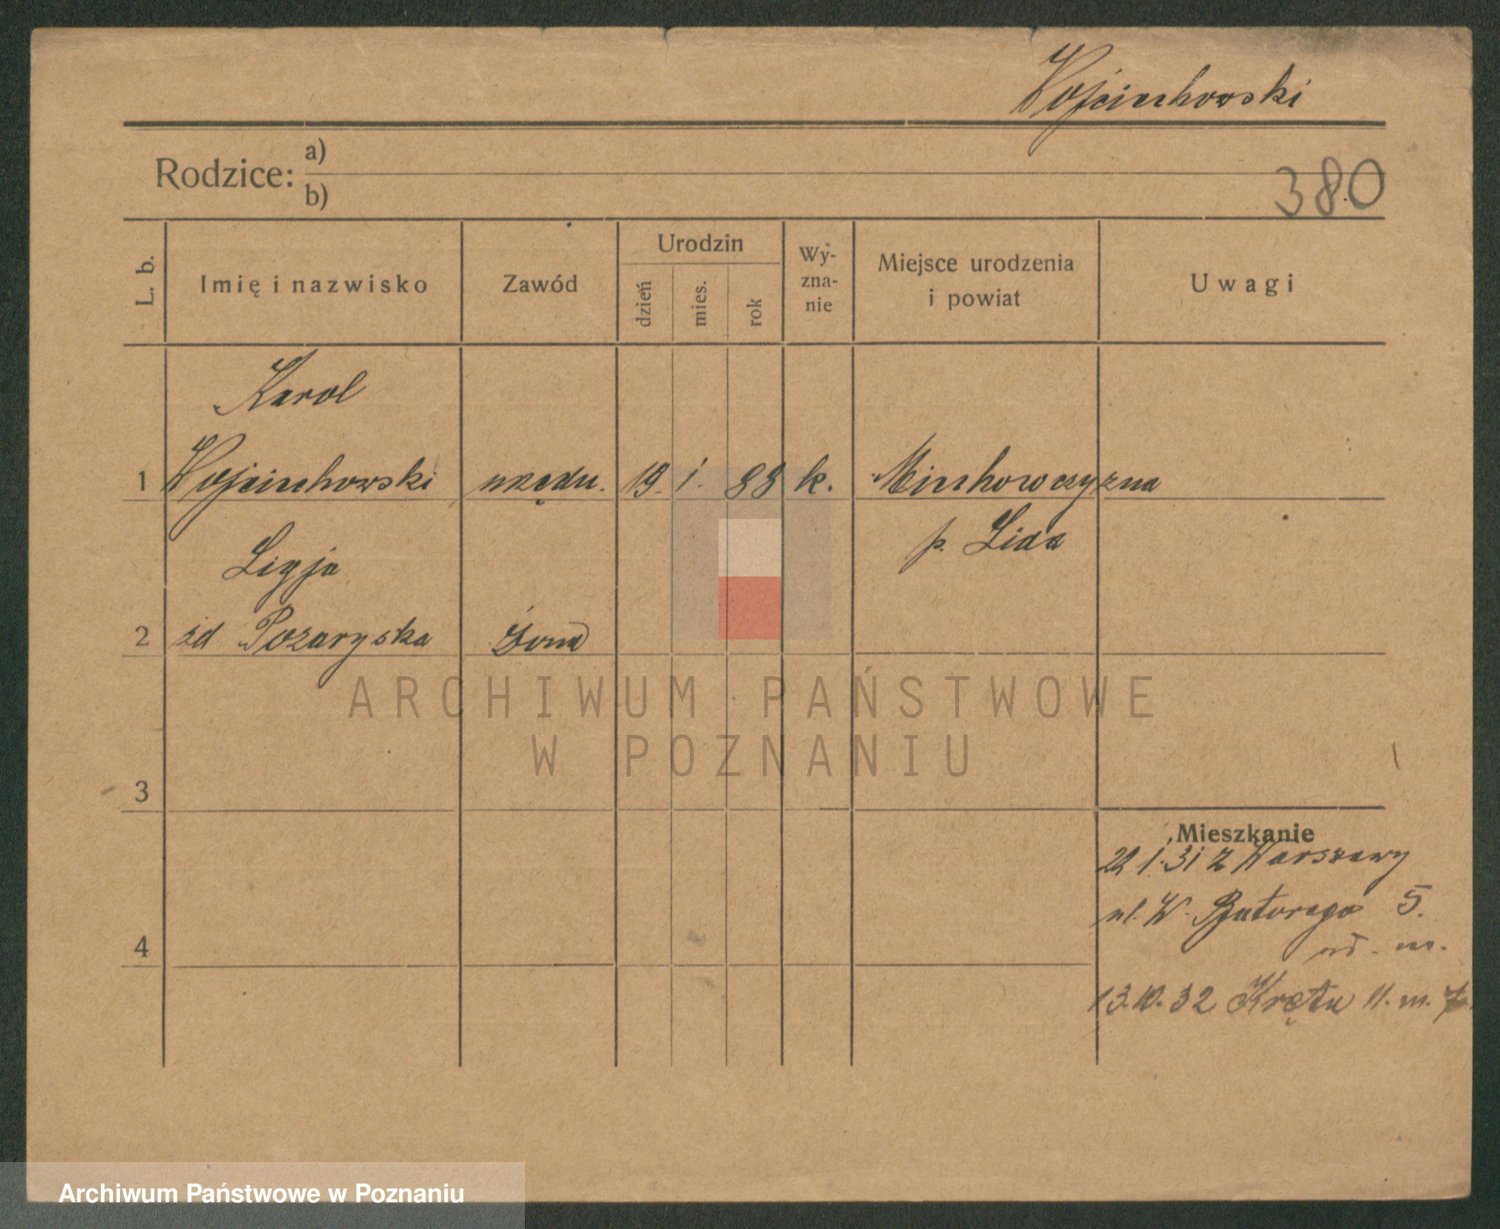 Wojciechowski
Rodzice: a)
b)
380
L. b.
Imię i nazwisko
Zawód
Urodzin
dzień
mies.
rok
Wy-
zna-
nie
Miejsce urodzenia
i powiat
Uwagi
Karol
1 Wojciechowski urzędn. 19. 1. 88 k. Miechowczyzna
p. Lida
Ligja
2 zd Pozaryska żona
ARCHIWUM PAŃSTWOWE
W POZNANIU
3
Mieszkanie
1. 31 z Warszawy
ul. Batorego 5.
4
13.10.32 Kręta 11. m. 7.
Archiwum Państwowe w Poznaniu